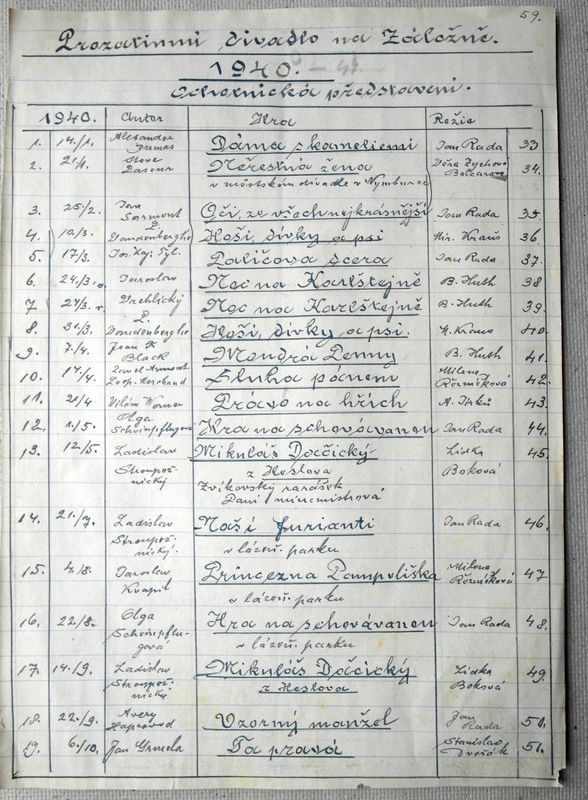 59.
Prozatimní divadlo na Záložně.
1940.
Ochotnická představení.
1940. Autor Hra Režie
1. 14./1. Alexandre Dumas Dáma s kameliemi Jan Rada 33
2. 21/1. Neřestná žena Věra Zychova 34.
v městském divadle v Nymburce
3. 25/2. Sarmont Oči, ze všech nejkrásnější Jan Rada 35
4. 10/3. Hoši, dívky a psi Mir. Kraus 36.
5. 17/3. Jos. Kaj. Tyl. Paličova dcera Jan Rada 37.
6. 24./3. o. Jaroslav Noc na Karlštejně B. Huth 38
7 24/3. v. Vrchlický Noc na Karlštejně B. Huth 39.
8. 31/3. Hoši, dívky a psi. M. Kraus 40.
9. 7./4. Jean K Black Moudrá Penny B. Huth 41.
10. 14/4. Sluha pánem Milena Rozmíčková 42.
11. 21/4 Vilém Werner Právo na hřích A. Jirků 43.
12. 1./5. Olga Scheinpflugová Hra na schovávanou Jan Rada 44.
13. 12/5. Ladislav Mikuláš Dačický Lidka 45.
Stroupež- z Heslova Boková
nický Zvíkovský rarášek
Paní mincmistrová
14. 21./7. Ladislav Naši furianti Jan Rada 46.
Stroupež-
nický. v lázeň. parku
15. 4./8. Jaroslav Princezna Pampeliška Milena 47.
Kvapil Rozmíčková
v lázeň. parku
16. 22/8. Olga Hra na schovávanou Jan Rada 48.
Scheinpflu-
gová v lázeň. parku
17. 14./9. Ladislav Mikuláš Dačický Lidka 49.
Stroupež- z Heslova Boková
nický
18. 22./9. Avery Hopwood Vzorný manžel Jan Rada 50.
19. 6./10. Jan Grmela Ta pravá Stanislav Dvořák 51.